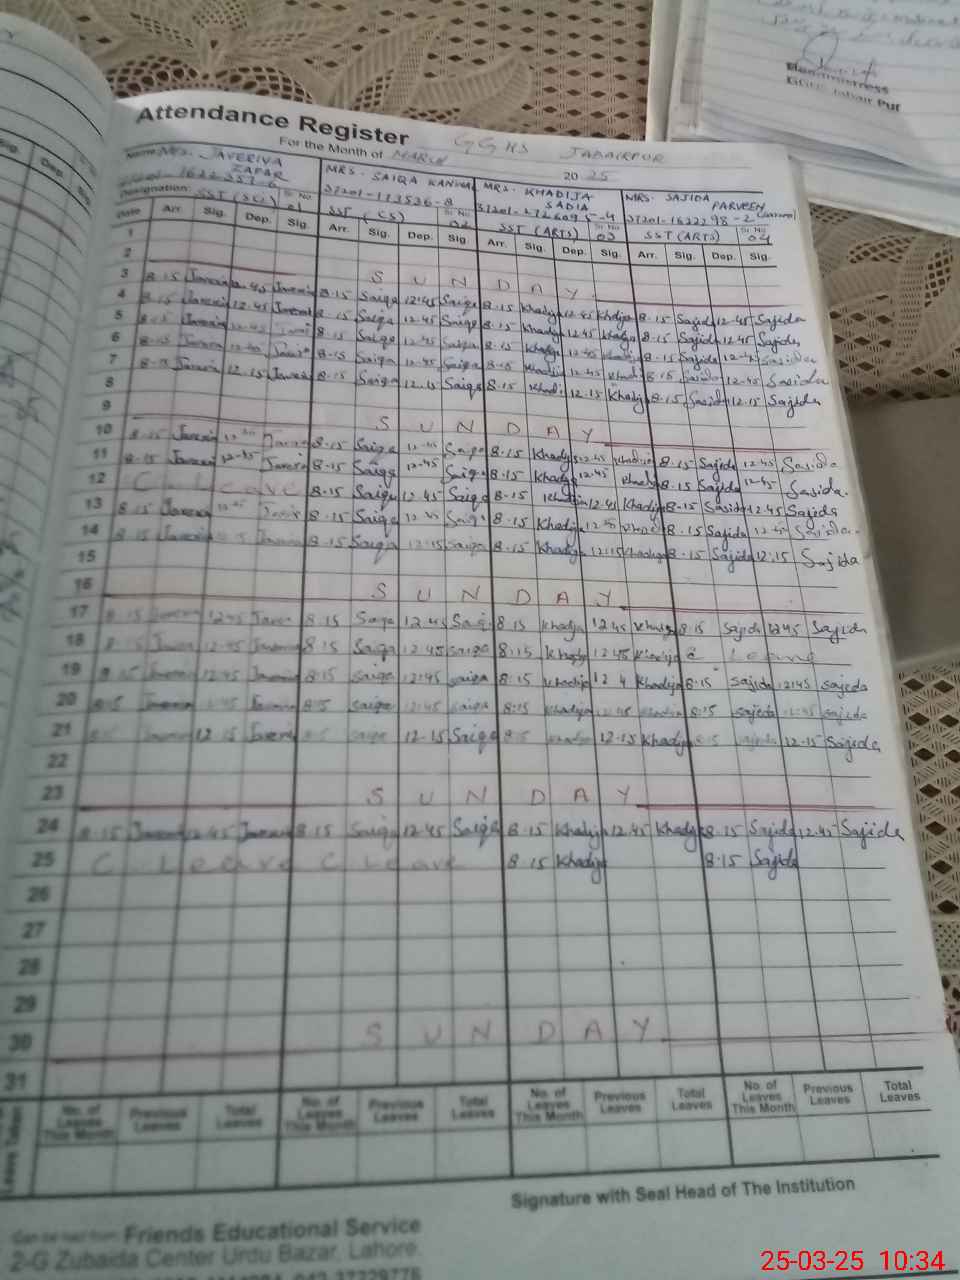 Headmistress
Attendance Register
GGHS JABAIRPUR
For the Month of MARCH 2025
Name Mrs. JAVERIYA ZAFAR
MRS. SAIQA KANWAL
MRS. KHADIJA SADIA
MRS. SAJIDA PARVEEN
Designation: SST (SCI) Sr. No 01
SST (CS) Sr. No 02
SST (ARTS) Sr. No 03
SST (ARTS) Sr. No 04
Date Arr. Sig. Dep. Sig. Arr. Sig. Dep. Sig. Arr. Sig. Dep. Sig. Arr. Sig. Dep. Sig.
1
2 SUNDAY
3 8.15 Javeria 12.45 Javeria 8.15 Saiqa 12.45 Saiqa 8.15 Khadija 12.45 Khadija 8.15 Sajida 12.45 Sajida
4 8.15 Javeria 12.45 Javeria 8.15 Saiqa 12.45 Saiqa 8.15 Khadija 12.45 Khadija 8.15 Sajida 12.45 Sajida
5 8.15 Javeria 12.45 Javeria 8.15 Saiqa 12.45 Saiqa 8.15 Khadija 12.45 Khadija 8.15 Sajida 12.45 Sajida
6 8.15 Javeria 12.45 Javeria 8.15 Saiqa 12.45 Saiqa 8.15 Khadija 12.45 Khadija 8.15 Sajida 12.45 Sajida
7 8.15 Javeria 12.15 Javeria 8.15 Saiqa 12.15 Saiqa 8.15 Khadija 12.15 Khadija 8.15 Sajida 12.15 Sajida
8
9 SUNDAY
10 8.15 Javeria 12.45 Javeria 8.15 Saiqa 12.45 Saiqa 8.15 Khadija 12.45 Khadija 8.15 Sajida 12.45 Sajida
11 8.15 Javeria 12.45 Javeria 8.15 Saiqa 12.45 Saiqa 8.15 Khadija 12.45 Khadija 8.15 Sajida 12.45 Sajida.
12 C Leave 8.15 Saiqa 12.45 Saiqa 8.15 Khadija 12.45 Khadija 8.15 Sajida 12.45 Sajida
13 8.15 Javeria 12.45 Javeria 8.15 Saiqa 12.45 Saiqa 8.15 Khadija 12.45 Khadija 8.15 Sajida 12.45 Sajida
14 8.15 Javeria 12.15 Javeria 8.15 Saiqa 12.15 Saiqa 8.15 Khadija 12.15 Khadija 8.15 Sajida 12.15 Sajida
15
16 SUNDAY
17 8.15 Javeria 12.45 Javeria 8.15 Saiqa 12.45 Saiqa 8.15 Khadija 12.45 Khadija 8.15 Sajida 12.45 Sajida
18 8.15 Javeria 12.45 Javeria 8.15 Saiqa 12.45 Saiqa 8.15 Khadija 12.45 Khadija
19 8.15 Javeria 12.45 Javeria 8.15 Saiqa 12.45 Saiqa 8.15 Khadija 12.4 Khadija 8.15 Sajida 12.45 Sajida
20 8.15 Javeria 12.45 Javeria 8.15 Saiqa 12.45 Saiqa 8.15 Khadija 12.45 Khadija 8.15 Sajida 12.45 Sajida
21 8.15 Javeria 12.15 Javeria 8.15 Saiqa 12.15 Saiqa 8.15 Khadija 12.15 Khadija 8.15 Sajida 12.15 Sajida
22
23 SUNDAY
24 8.15 Javeria 12.45 Javeria 8.15 Saiqa 12.45 Saiqa 8.15 Khadija 12.45 Khadija 8.15 Sajida 12.45 Sajida
25 C Leave C Leave 8.15 Khadija 8.15 Sajida
26
27
28
29
30 SUNDAY
31
No. of Leaves This Month Previous Leaves Total Leaves No. of Leaves This Month Previous Leaves Total Leaves No. of Leaves This Month Previous Leaves Total Leaves No. of Leaves This Month Previous Leaves Total Leaves
Signature with Seal Head of The Institution
Can be had from: Friends Educational Service
2-G Zubaida Center Urdu Bazar, Lahore.
25-03-25 10:34